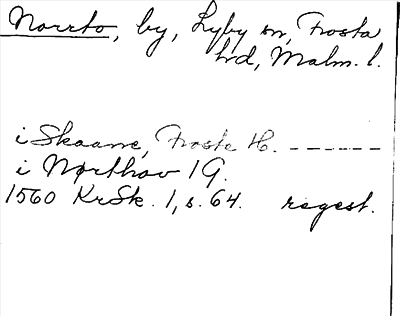 Norrto, by, Lyby sn, Frosta
hd, Malm. l.
i Skaane, Froste H. ------
i Northov 1 G.
1560 KrSk. 1, s. 64. regest.